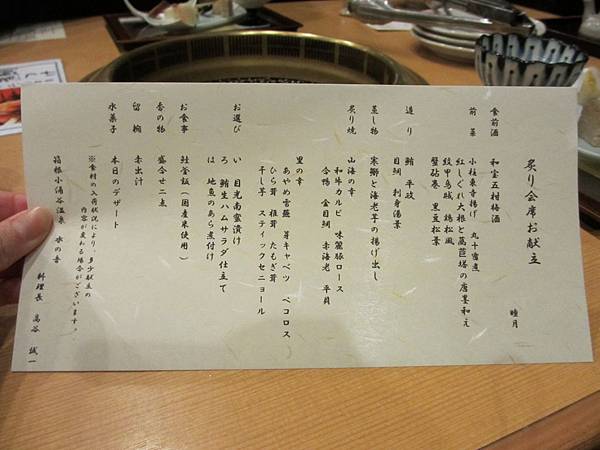 炙り会席お献立
睦月
食前酒 和宝五村梅酒
前菜 小柱東寺揚げ 丸十蜜煮
紅しぐれ大根と萵苣塔の唐墨和え
紋甲烏賊 鶏松風
蟹砧巻 黒豆松葉
造り 鮪 平政
目鯛 刺身湯葉
蒸し物 寒鰤と海老芋の揚げ出し
炙り焼 山海の幸
和牛カルビ 味麗豚ロース
合鴨 金目鯛 赤海老 平貝
里の幸
あやめ雪蕪 芽キャベツ ペコロス
ひら茸 椎茸 たもぎ茸
干し芋 スティックセニョール
お選び い 目光南蛮漬け
ろ 鮪生ハムサラダ仕立て
は 地魚のあら煮付け
お食事 鮭釜飯(国産米使用)
香の物 盛合せ二点
留椀 赤出汁
水菓子 本日のデザート
※食材の入荷状況により、多少献立の
内容が変わる場合がございます。
箱根小涌谷温泉 水の音
料理長 高谷 誠一